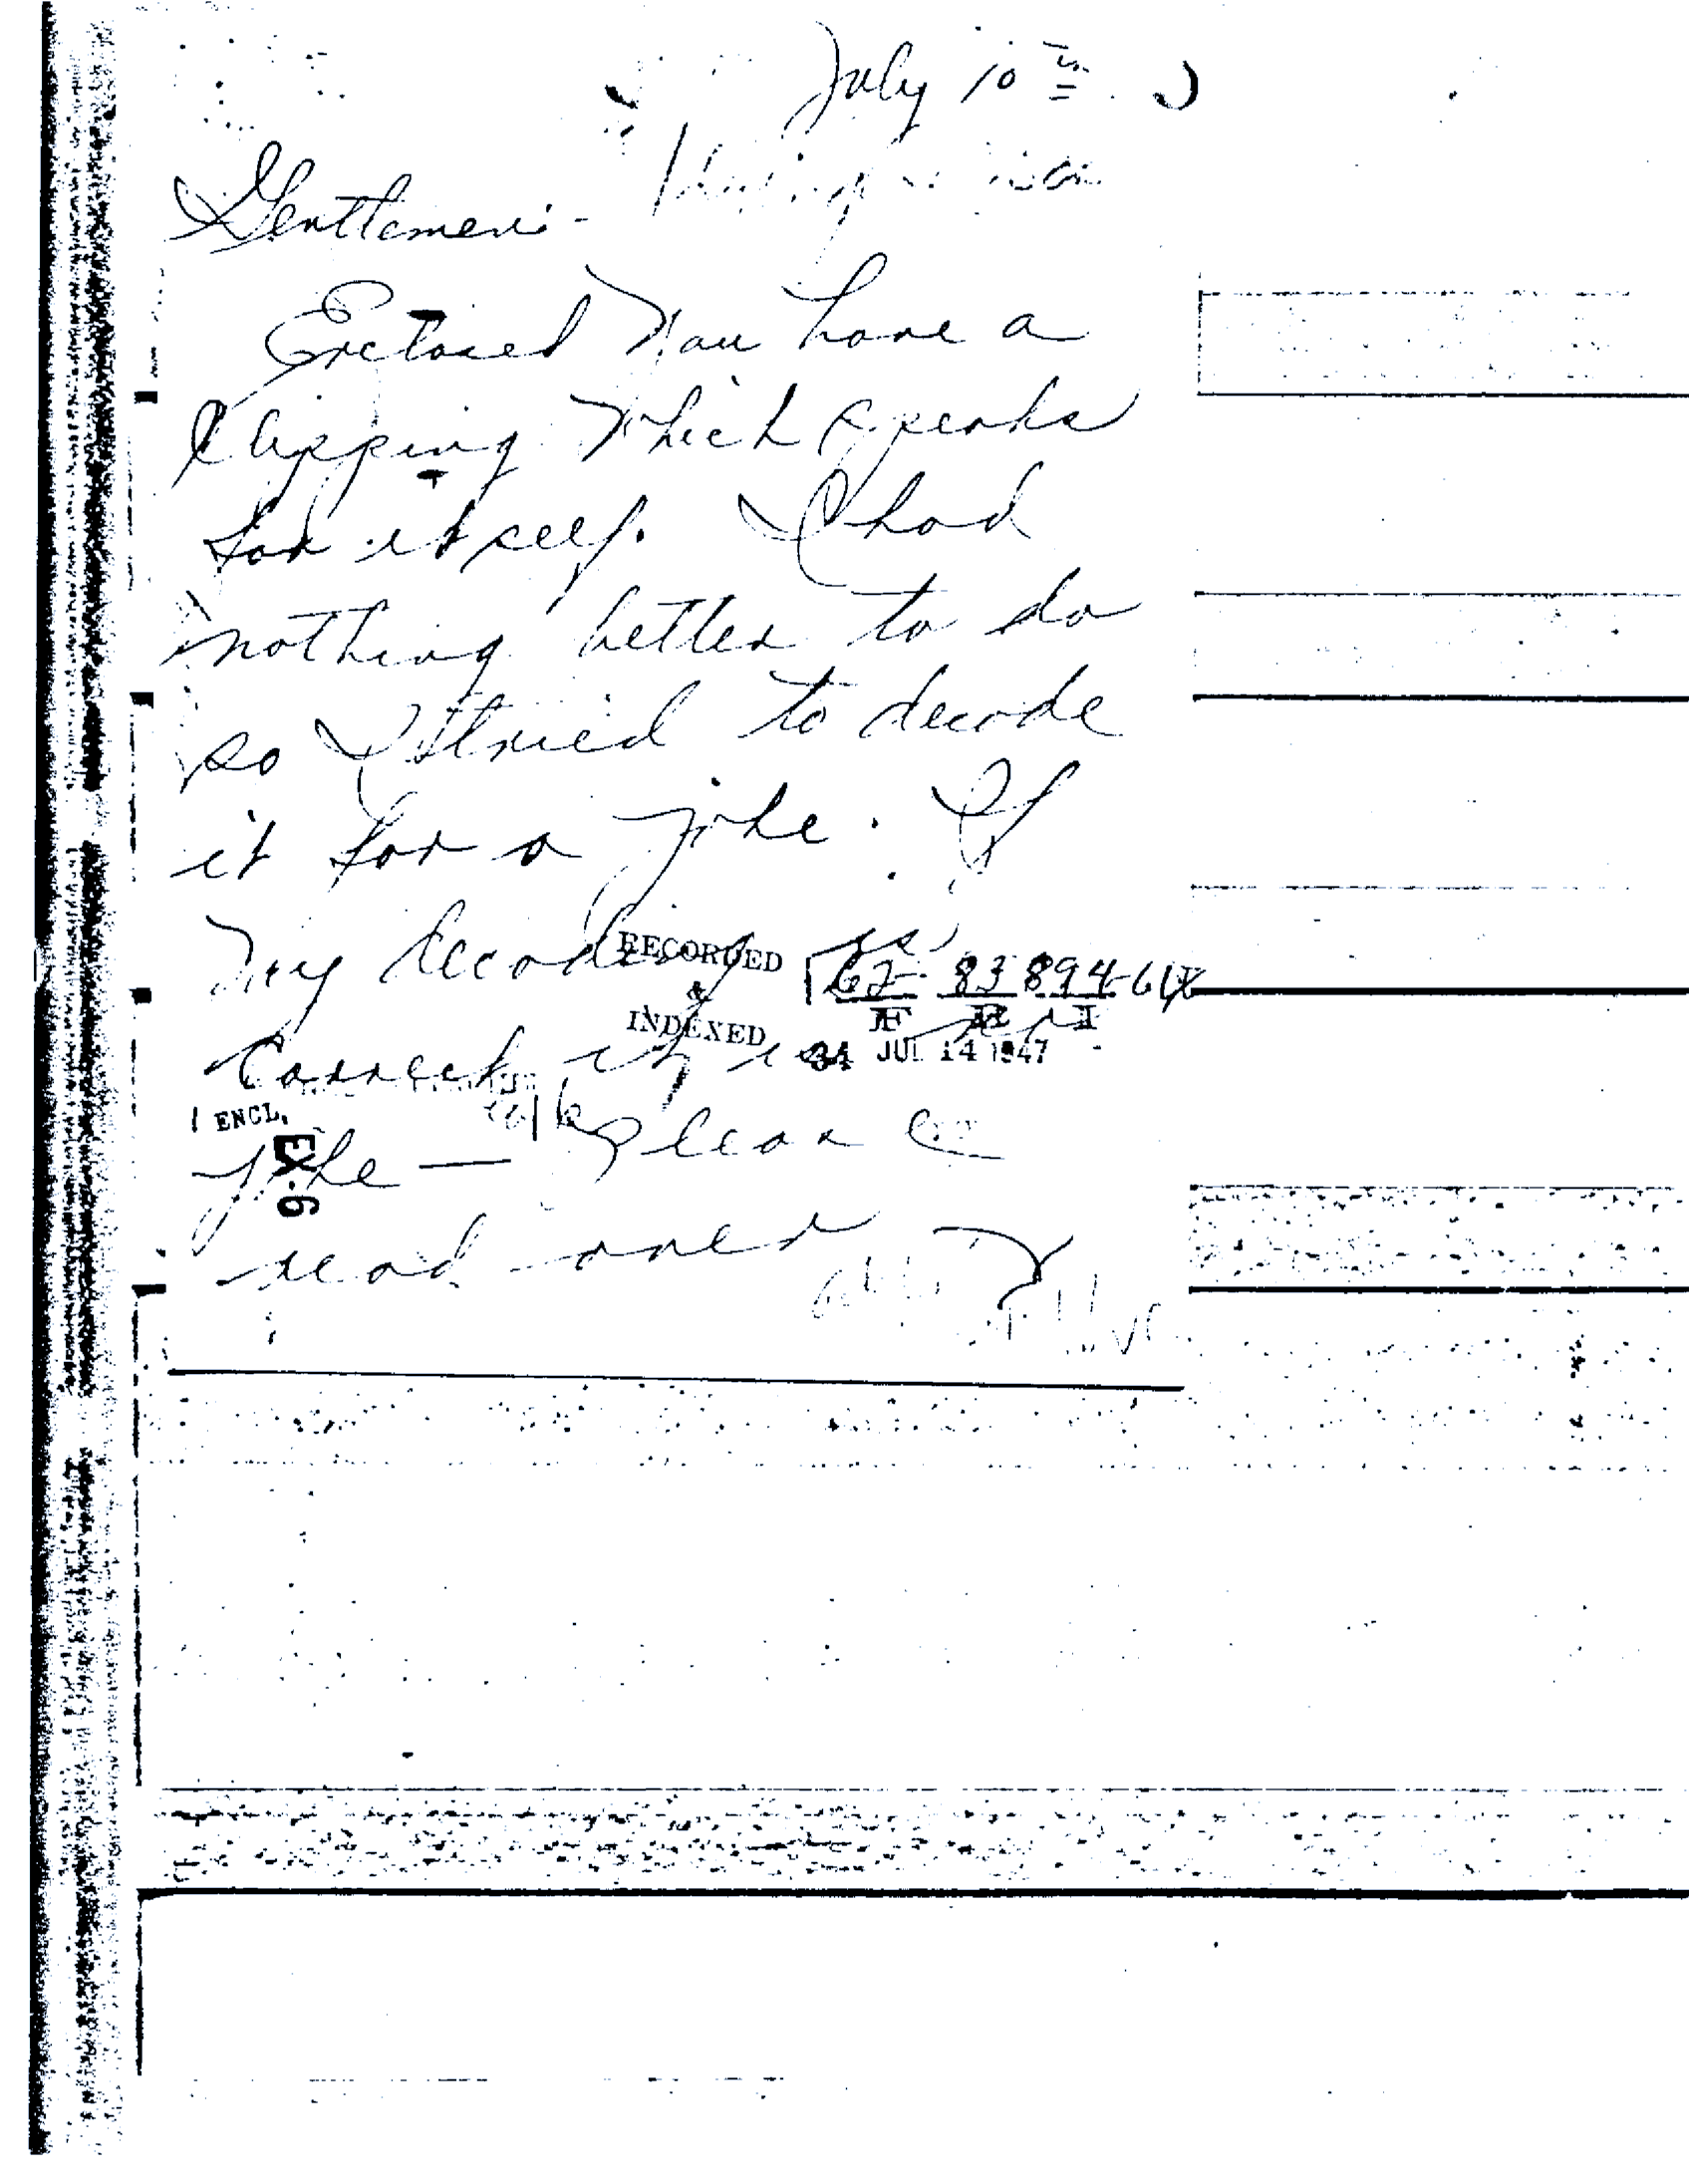 July 10th
Gentlemen:-
Enclosed You have a
Clipping Which speaks
for itself. I had
nothing better to do
so I tried to decode
it for a joke. If
My decoding is
RECORDED
&
INDEXED
62-83894-61
F B I
34 JUL 14 1947
Correct it is no
1 ENCL.
EX-6
joke — Please
read over